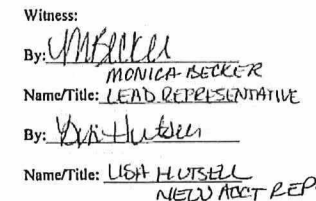 Witness:
By: MBecker
MONICA BECKER
Name/Title: LEAD REPRESENTATIVE
By: Hutsell
Name/Title: LISA HUTSELL
NEW ACCT REP.